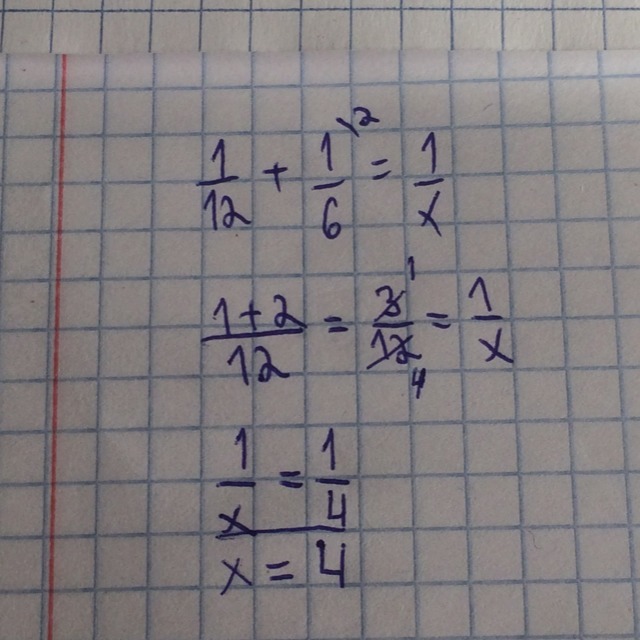 1/12 + 1/6 \2 = 1/x
(1+2)/12 = 3 1/12 4 = 1/x
1/x = 1/4
x = 4